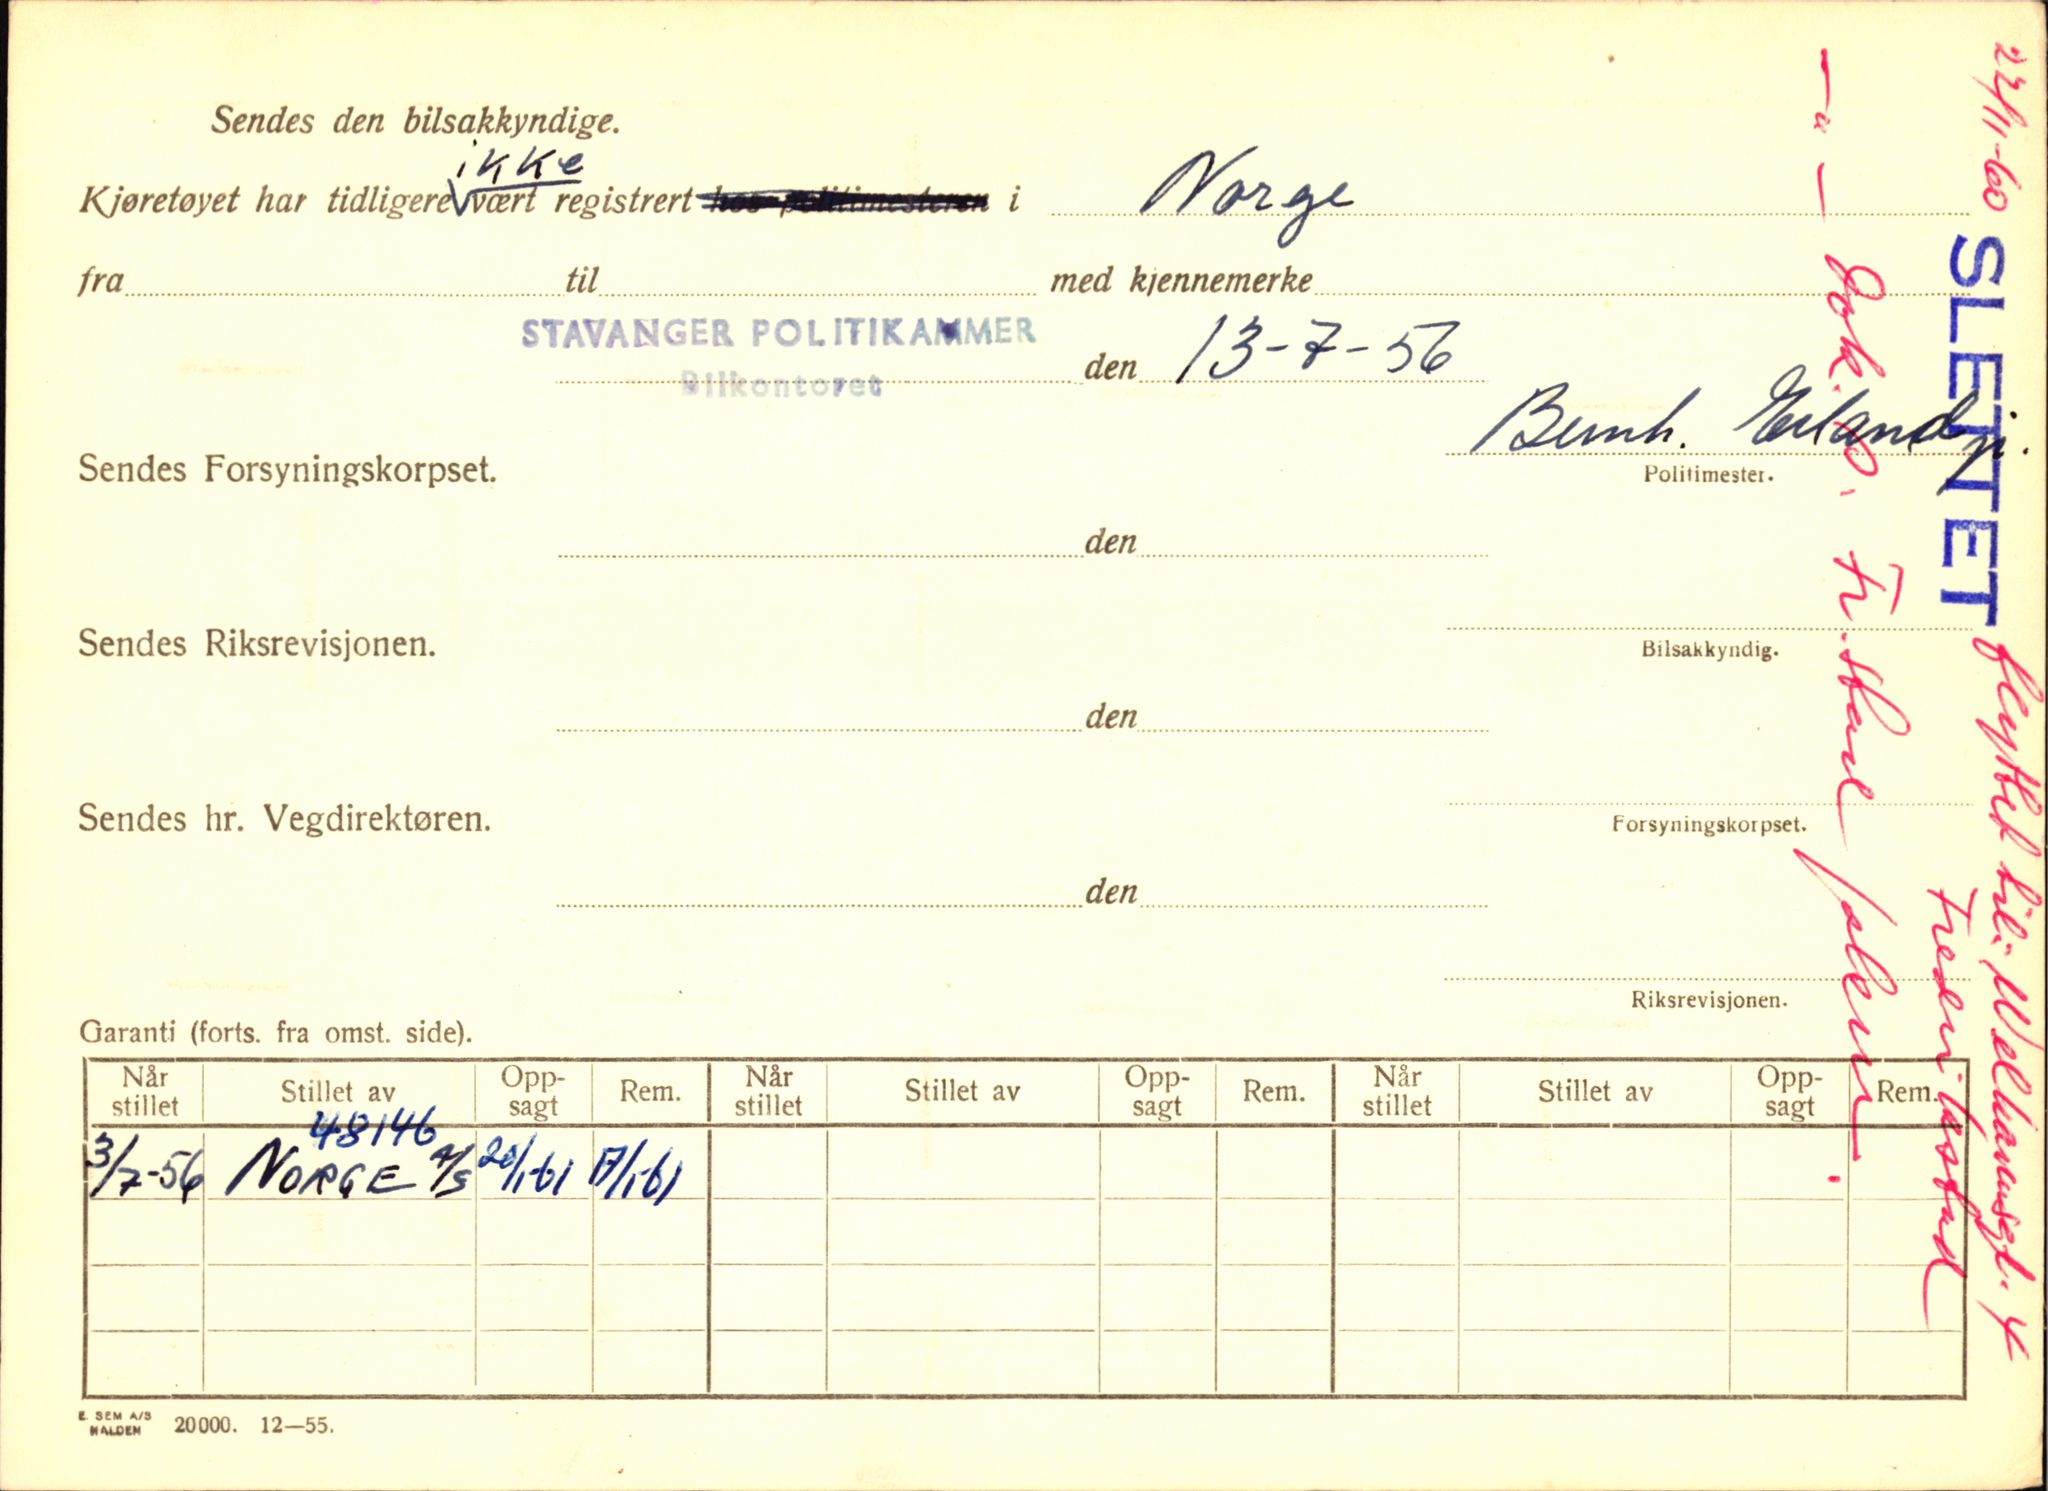 Sendes den bilsakkyndige.
ikke
Kjøretøyet har tidligere vært registrert hos politimesteren i Norge
fra til med kjennemerke
STAVANGER POLITIKAMMER
Bilkontoret
den 13-7-56
Bernh. Eiland jr.
Politimester.
Sendes Forsyningskorpset.
den
Bilsakkyndig.
Sendes Riksrevisjonen.
den
Forsyningskorpset.
Sendes hr. Vegdirektøren.
den
Riksrevisjonen.
Garanti (forts. fra omst. side).
Når stillet Stillet av Opp-sagt Rem. Når stillet Stillet av Opp-sagt Rem. Når stillet Stillet av Opp-sagt Rem.
48146
3/7-56 NORGE A/S 20/1-61 17/1-61
E. SEM A/S
HALDEN
20000. 12—55.
22/11-60 SLETTET flyttet til: Welhavensgt. 4
Fredrikstad
— " —